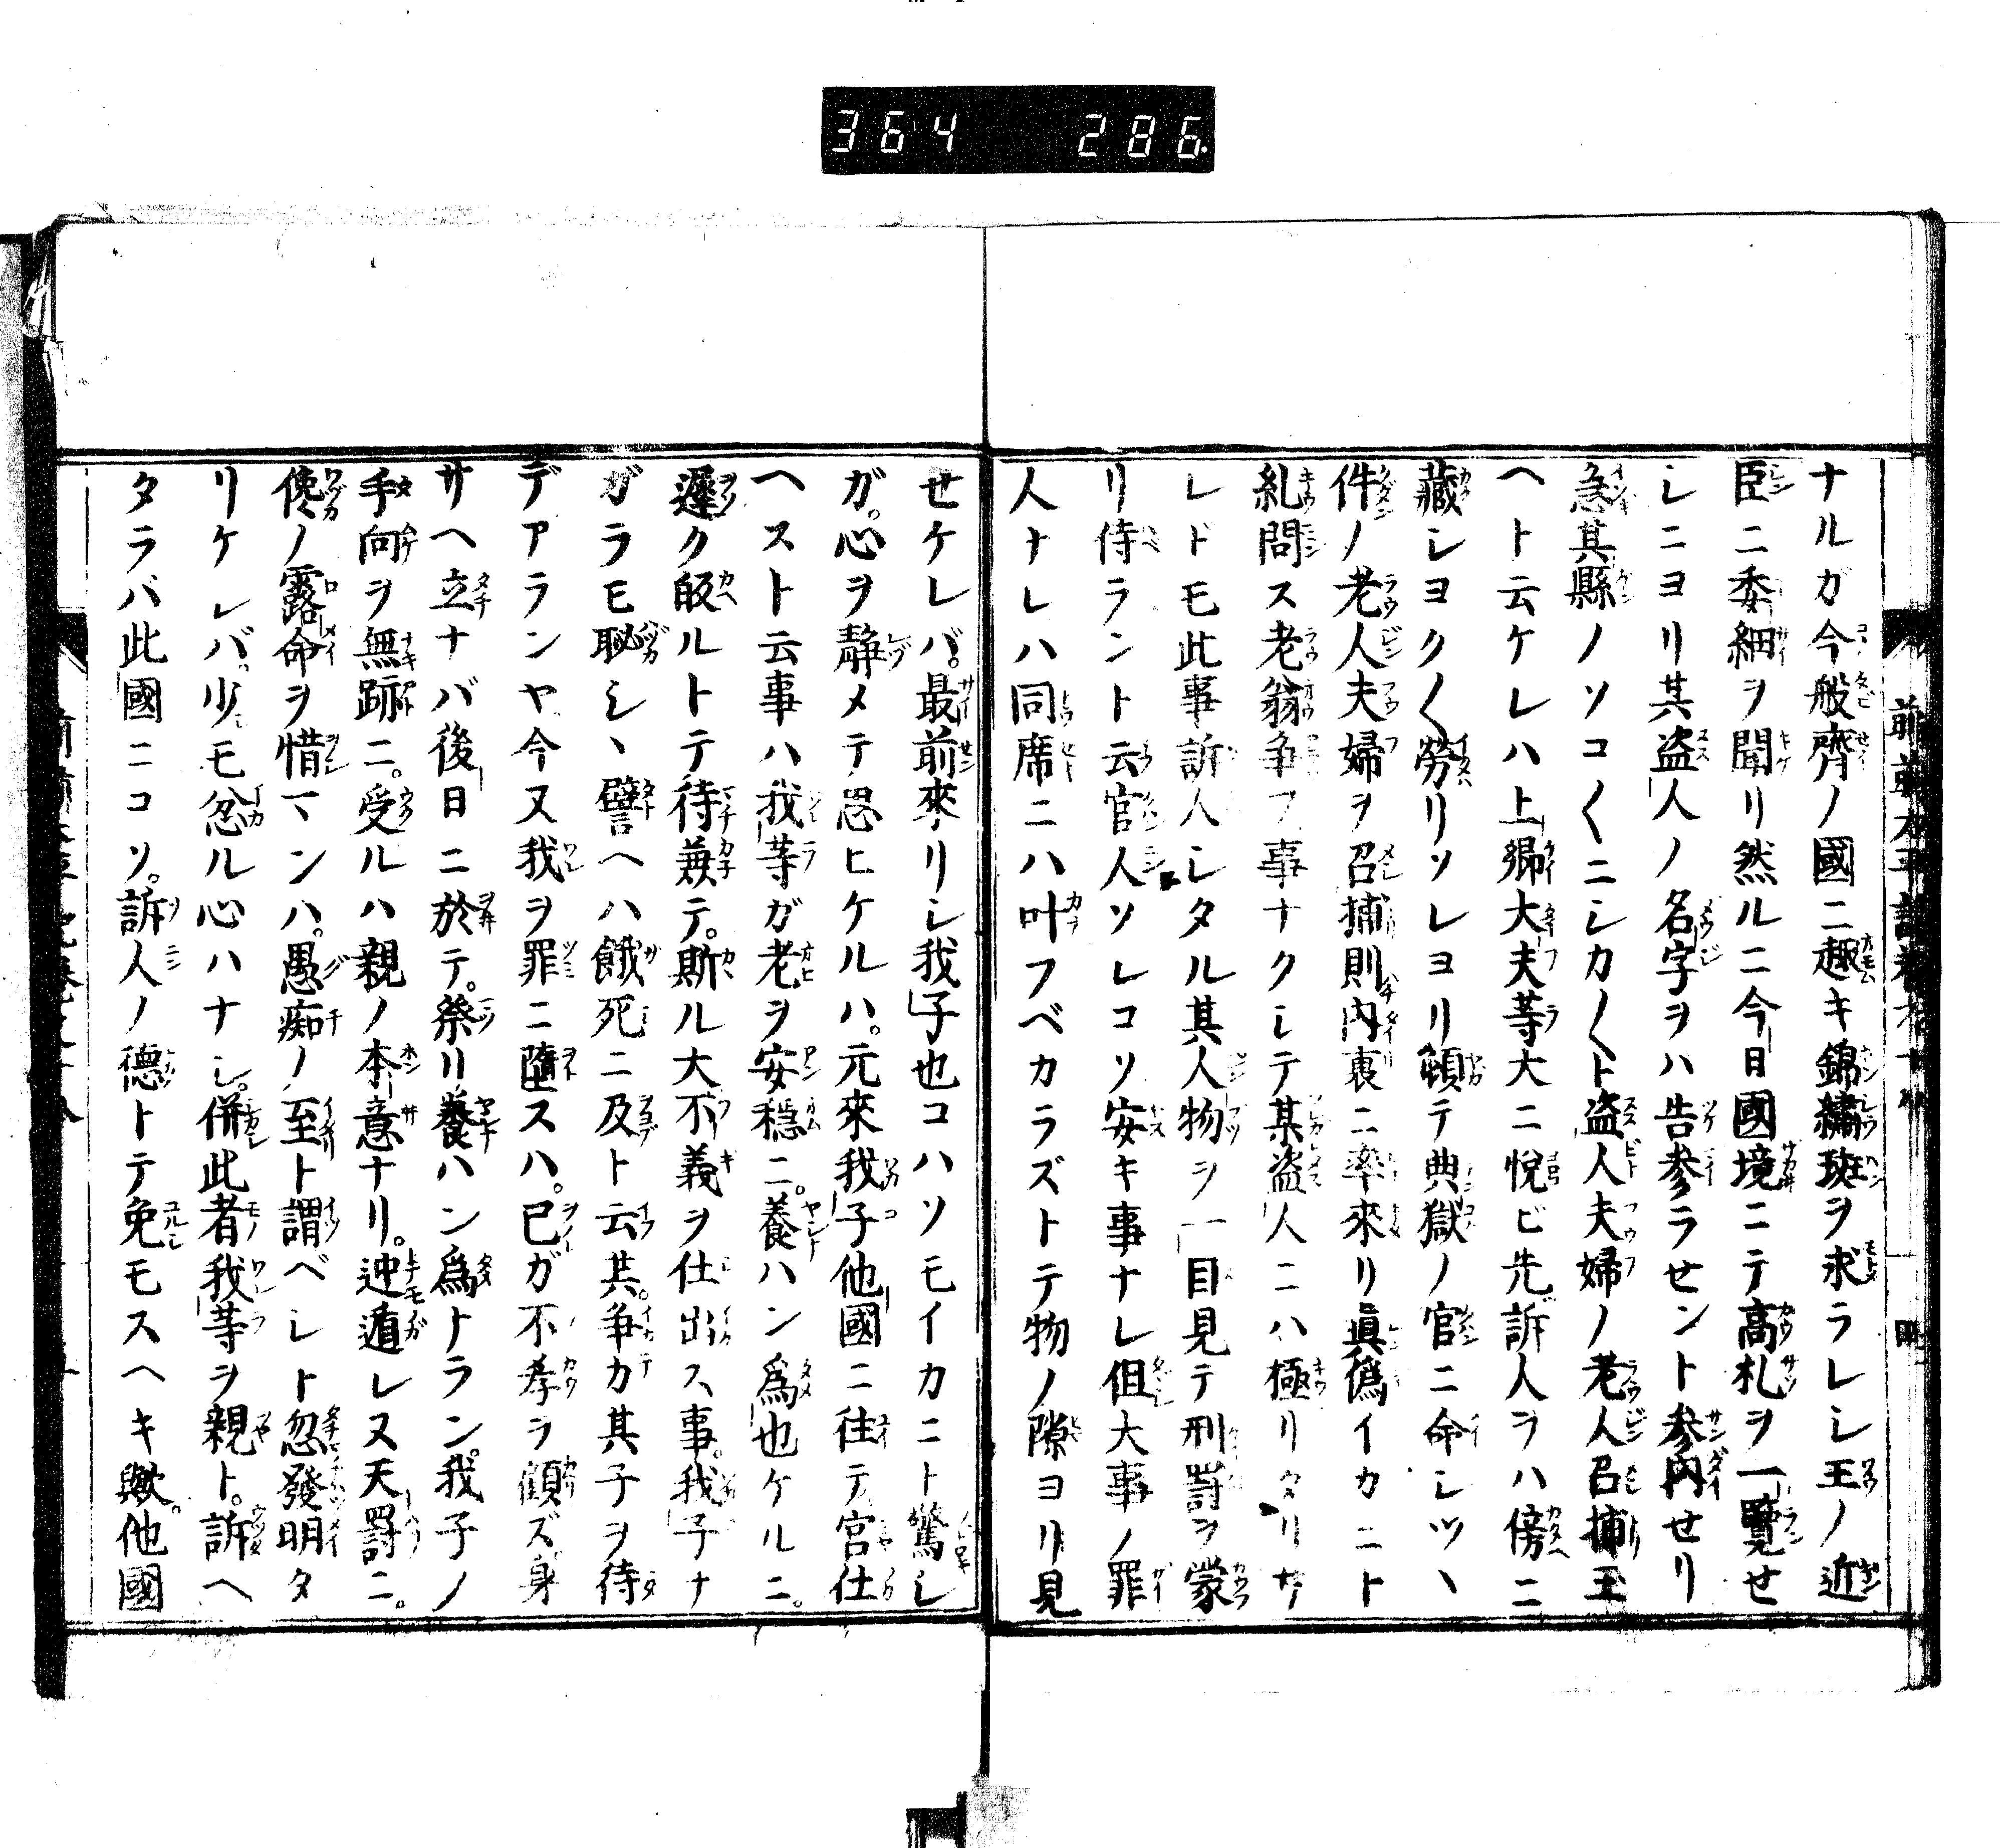 364 286
ナルガ今般齊ノ國ニ趣キ錦繡珱ヲ求ラレシ王ノ近
臣ニ委細ヲ聞リ然ルニ今日國境ニテ高札ヲ一覽せ
シニヨリ其盗人ノ名字ヲハ告参ラせント参内せリ
急其縣ノソコ〱ニシカ〱ト盗人夫婦ノ老人召捕王
ヘト云ケレハ上卿大夫等大ニ悅ビ先訴人ヲハ傍ニ
藏シヨク〱勞リソレヨリ頓テ典獄ノ官ニ命シツヽ
件ノ老人夫婦ヲ召捕則内裏ニ率來リ眞僞イカニト
糺問ス老翁争フ事ナクシテ某盗人ニハ極リタリサ
レドモ此事訴人シタル其人物ヲ一目見テ刑罸ヲ蒙
リ侍ラント云官人ソレコソ安キ事ナレ但大事ノ罪
人ナレハ同席ニハ叶フベカラズトテ物ノ隙ヨリ見
せケレバ。最前來リシ我子也コハソモイカニト驚シ
ガ。心ヲ静メテ思ヒケルハ。元來我子他國ニ往テ宮仕
ヘスト云事ハ我等ガ老ヲ安穩ニ。養ハン爲也ケルニ。
遲ク皈ルトテ待兼テ。斯ル大不義ヲ仕出ス事。我子ナ
ガラモ恥シヽ譬ヘハ餓死ニ及ト云共。争カ其子ヲ待
デアランヤ今又我ヲ罪ニ墮スハ。己ガ不孝ヲ顧ズ身
サヘ立ナバ後日ニ於テ。祭リ養ハン爲トラン。我子ノ
手向ヲ無跡ニ。受ルハ親ノ本意ナリ。迚遁レヌ天罸ニ。
ノ露命ヲ惜マンハ。愚痴ノ至ト謂ベシト忽發明タ
リケレバ。少モ忿ル心ハナシ。併此者我等ヲ親ト。訴ヘ
タラバ此國ニコソ。訴人ノ德トテ免モスヘキ歟。他國